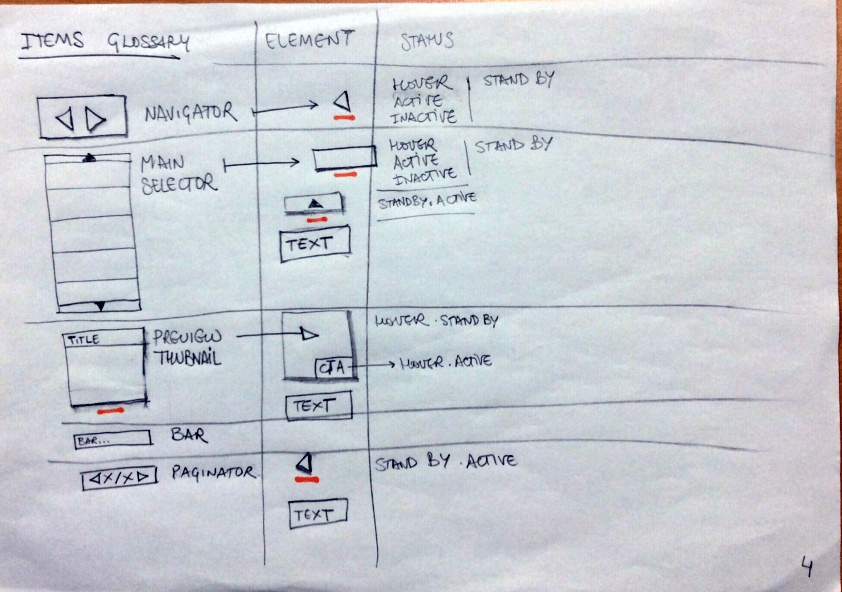 ITEMS GLOSSARY ELEMENT STATUS
NAVIGATOR
HOVER
ACTIVE
INACTIVE
STAND BY
MAIN
SELECTOR
HOVER
ACTIVE
INACTIVE
STAND BY
STANDBY. ACTIVE
TEXT
TITLE
PREVIEW
THUBNAIL
CTA
HOVER . STAND BY
HOVER . ACTIVE
TEXT
BAR...
BAR
X/X
PAGINATOR
STAND BY . ACTIVE
TEXT
4